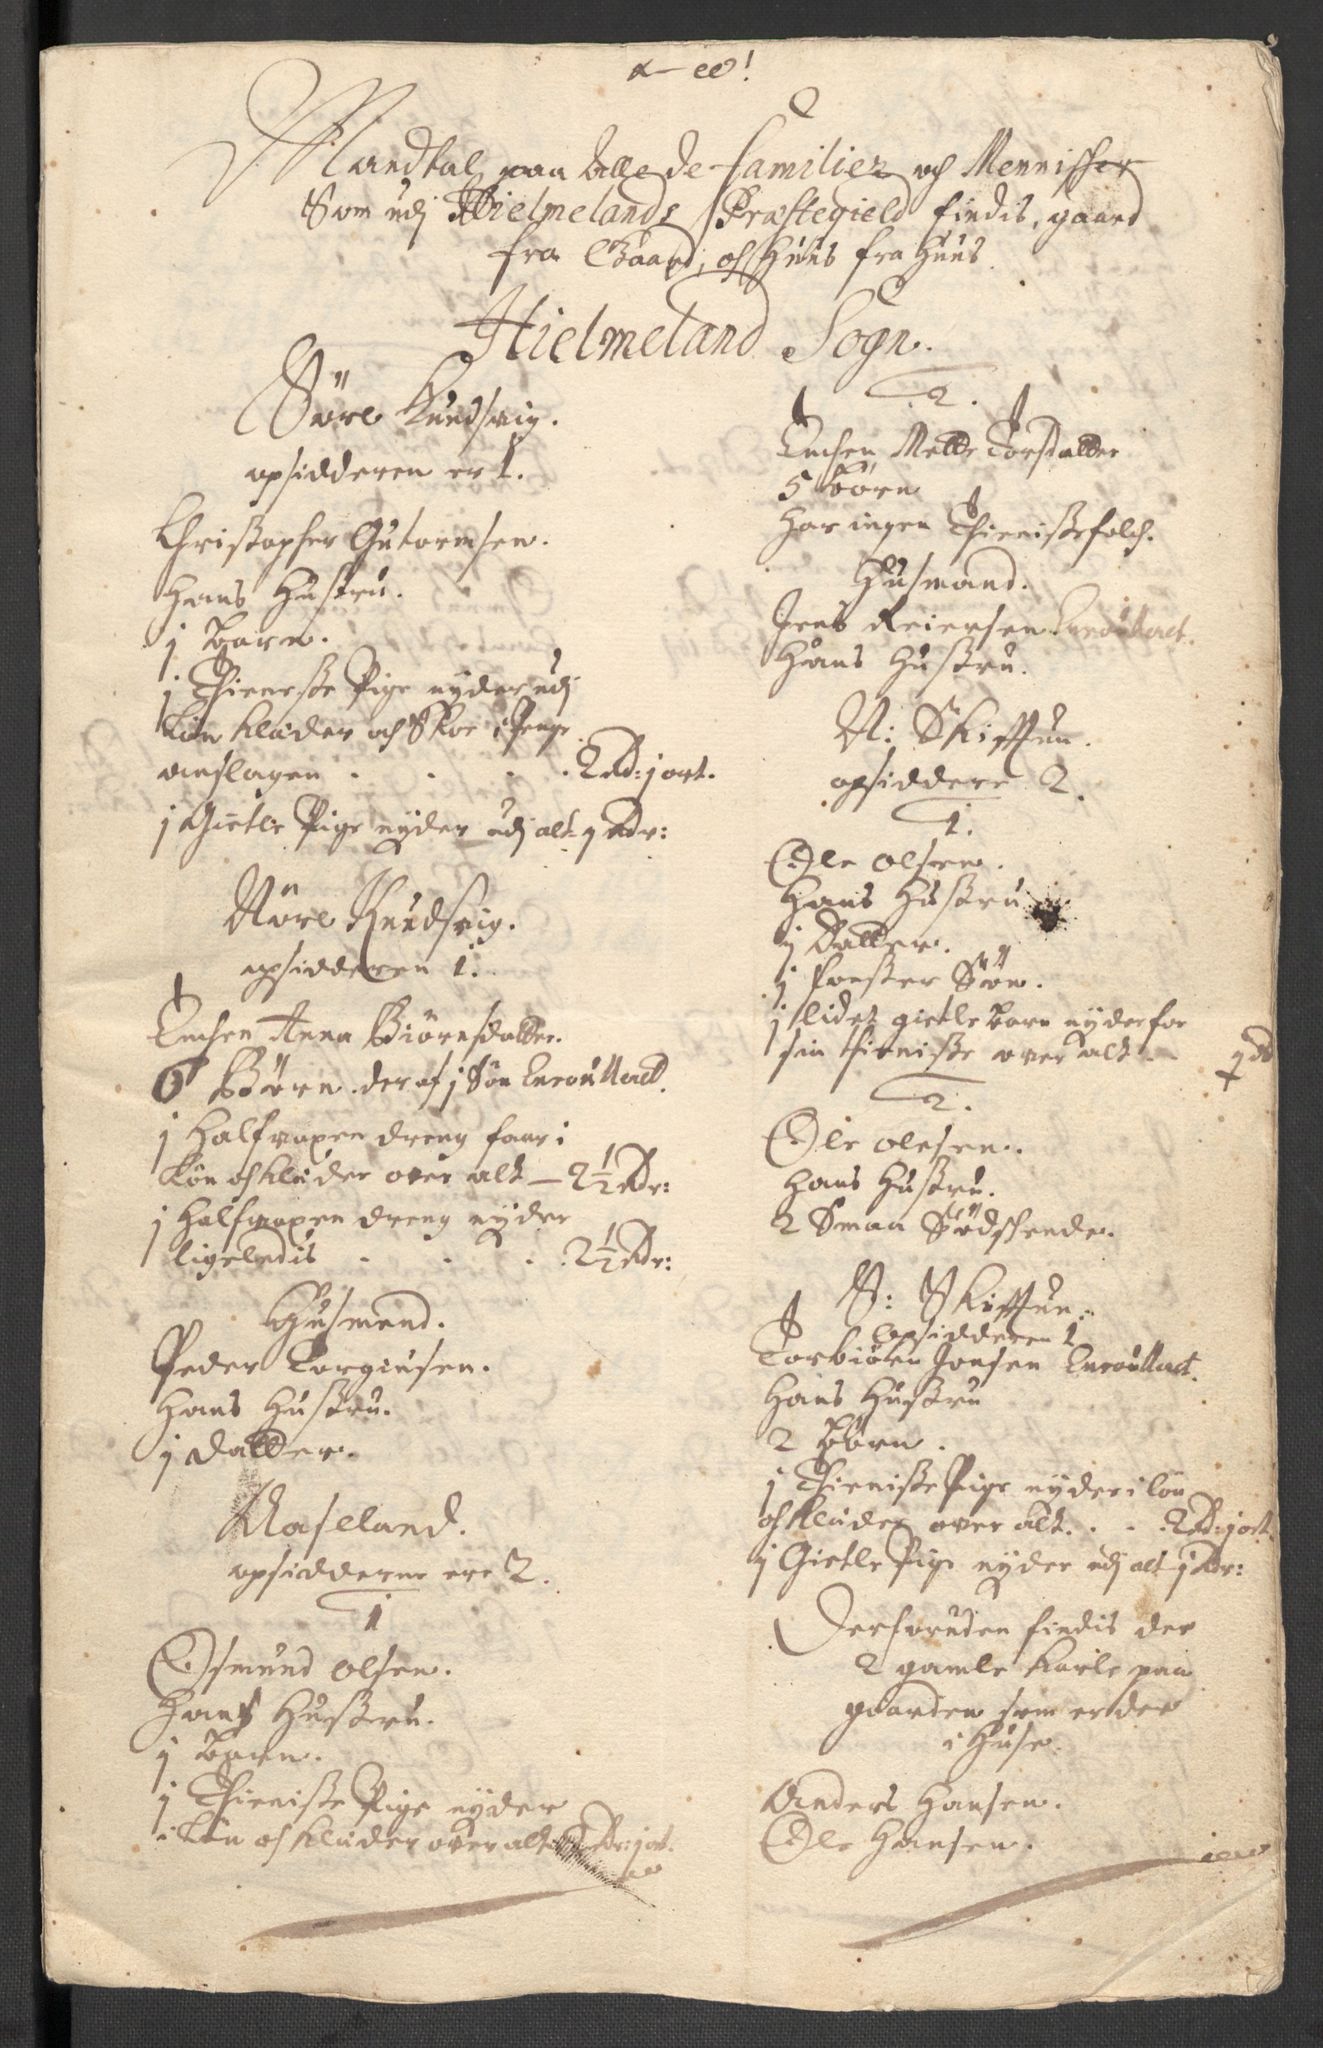 Mandtal paa alle de familier och Mennisker
Som udj Hielmelands Præstegield findis, gaard
fra Gaard, och Huus fra Huus
Hielmeland Sogn.
Søre Knudsvig.
opsidderen er 1.
Christopher Gutormsen.
Hans Hustru.
j barn.
j Thieneste Pige nyder udj
Løn klæder och Skoe i Penge
anslagen . . . . 2 Rd: j ort.
j Gietle Pige nyder udj alt j Rdr:
Nøre Knudsvig.
opsidderen 1.
Enchen Anna Biørnsdatter.
6 Børn der af j Søn Enroulleret.
j Halfvoxen dreng faar i
Løn och klæder over alt – 2½ Rdr:
j Halfvoxen dreng nyder
ligeledis . . . 2½ Rdr:
Husmend.
Peder Torgiusen.
Hans Hustru.
j datter.
opsidderne ere 2.
1
Osmund Olsen.
Hans Hustru.
j barn.
j Thieniste Pige nyder
i Løn och klæder over alt 2 Rdr: j ort.
2.
Enchen Mette Torsdatter
5 børn
Har ingen Thienistefolch.
Husmand.
Jens Reiersen Enroulleret.
Hans Hustru.
N: Skifftun.
opsiddere 2.
1.
Ole Olsen.
Hans Hustru
j datter.
j foster Søn.
j lidet gietle barn nyder for
sin thieniste over alt – j Rd
2.
Ole Olesen.
Hans Hustru.
2 Smaa Sødschende.
S: Skifftun.
opsidderen 1
Torbiøren Jonsen Enroulleret.
Hans Hustru
2 børn.
j Thieniste Pige nyder i løn
och klæder over alt. . . 2 Rd: j ort.
j Gietle Pige nyder udj alt j Rdr:
Desforuden findis der
2 gamle Karle paa
gaarden som er der
i Huse.
Anders Hansen.
Ole Hansen.